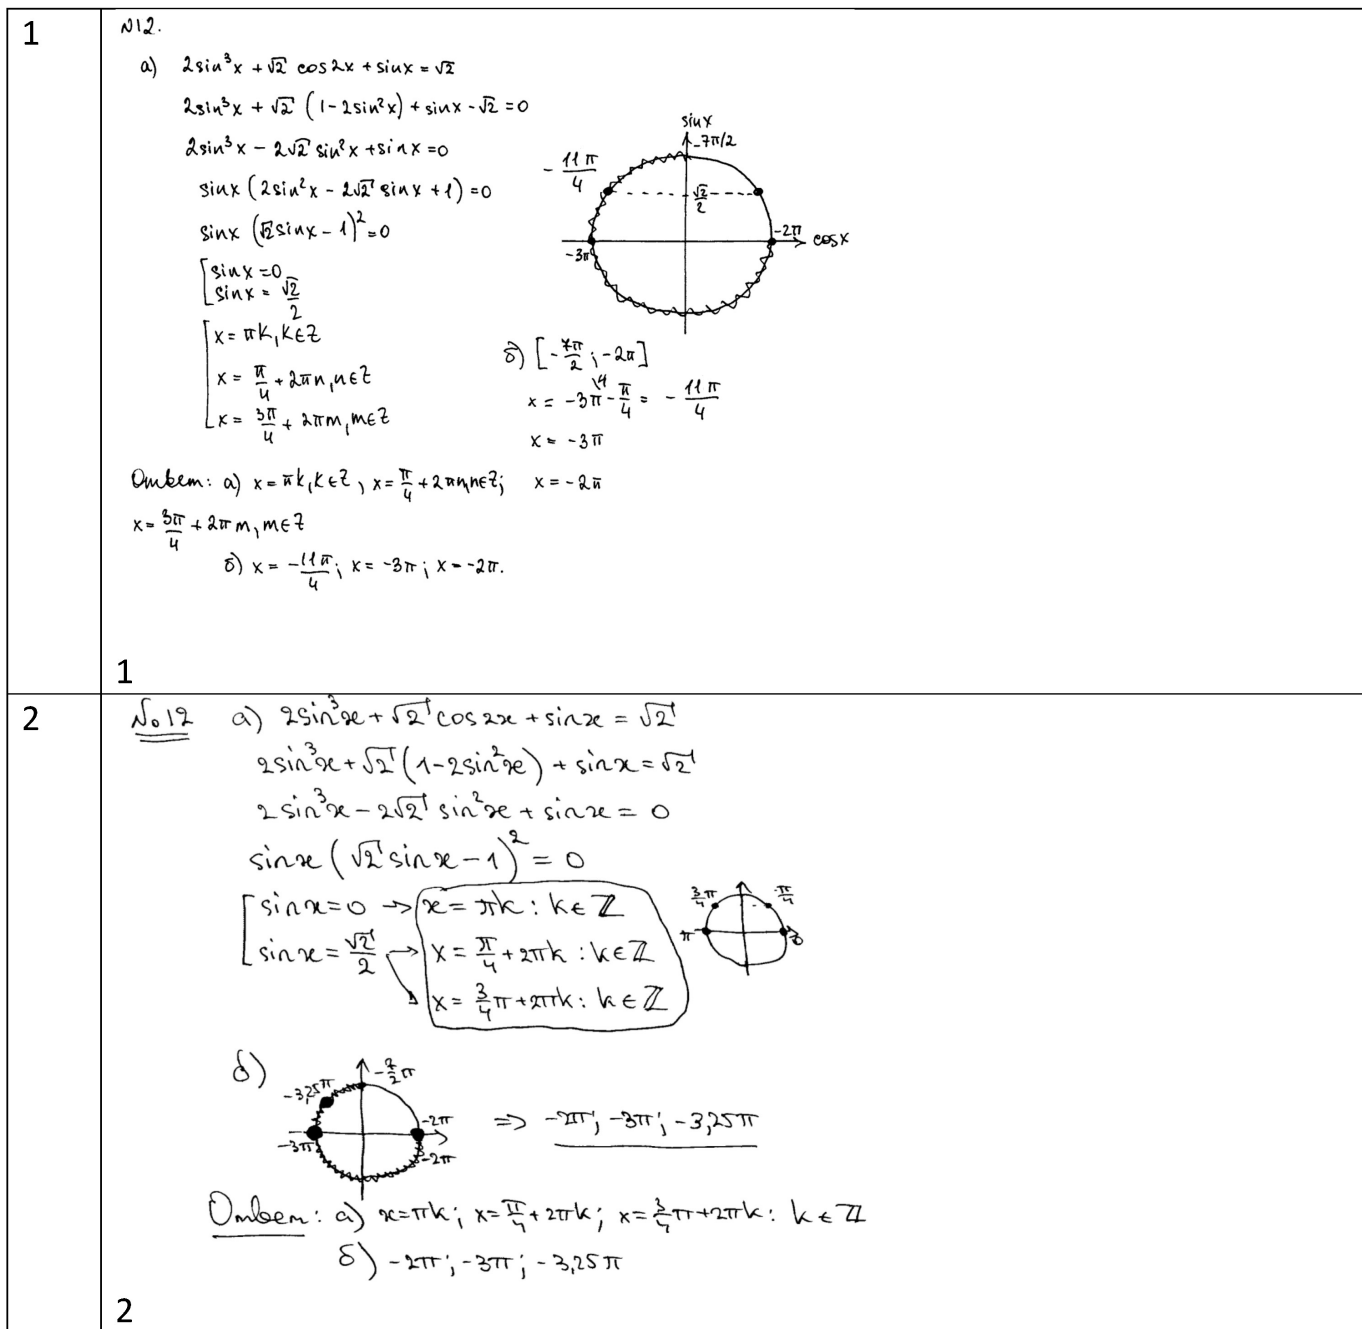 1
№12.
а) 2sin³x + √2 cos2x + sinx = √2
2sin³x + √2 (1 - 2sin²x) + sinx - √2 = 0
2sin³x - 2√2 sin²x + sinx = 0
sinx (2sin²x - 2√2 sinx + 1) = 0
sinx (√2 sinx - 1)² = 0
[ sinx = 0
sinx = √2/2
[ x = πk, k∈Z
x = π/4 + 2πn, n∈Z
x = 3π/4 + 2πm, m∈Z
sinx
-7π/2
-11π/4
√2/2
-3π
-2π
cosx
б) [-7π/2; -2π]
x = -3π\4 - π/4 = -11π/4
x = -3π
x = -2π
Ответ: а) x = πk, k∈Z, x = π/4 + 2πn, n∈Z;
x = 3π/4 + 2πm, m∈Z
б) x = -11π/4; x = -3π; x = -2π.
1
2
№12 а) 2sin³x + √2 cos2x + sinx = √2
2sin³x + √2 (1 - 2sin²x) + sinx = √2
2sin³x - 2√2 sin²x + sinx = 0
sinx (√2 sinx - 1)² = 0
[ sinx = 0 → x = πk : k∈Z
sinx = √2/2 → x = π/4 + 2πk : k∈Z
x = 3/4π + 2πk : k∈Z
3/4π
π/4
π
0
б)
-7/2π
-3,25π
-3π
-2π
-2π
⇒ -2π; -3π; -3,25π
Ответ: а) x = πk; x = π/4 + 2πk; x = 3/4π + 2πk : k∈Z
б) -2π; -3π; -3,25π
2